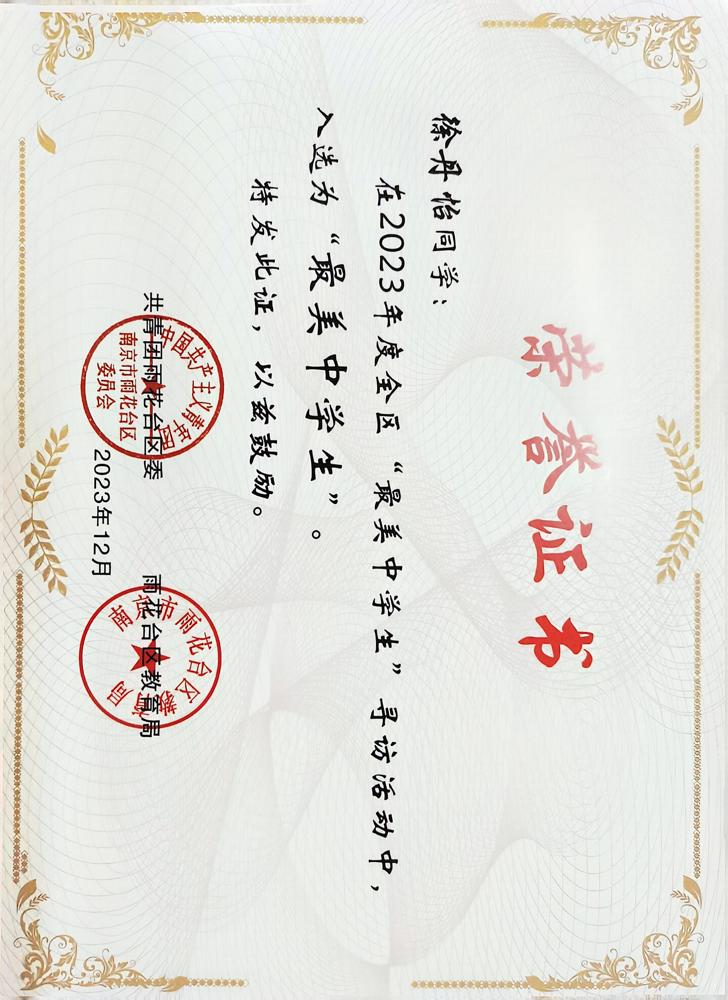 荣誉证书
徐丹怡同学：
在2023年度全区“最美中学生”寻访活动中，
入选为“最美中学生”。
特发此证，以兹鼓励。
共青团雨花台区委
雨花台区教育局
2023年12月
中国共产主义青年团
南京市雨花台区
委员会
南京市雨花台区教育局